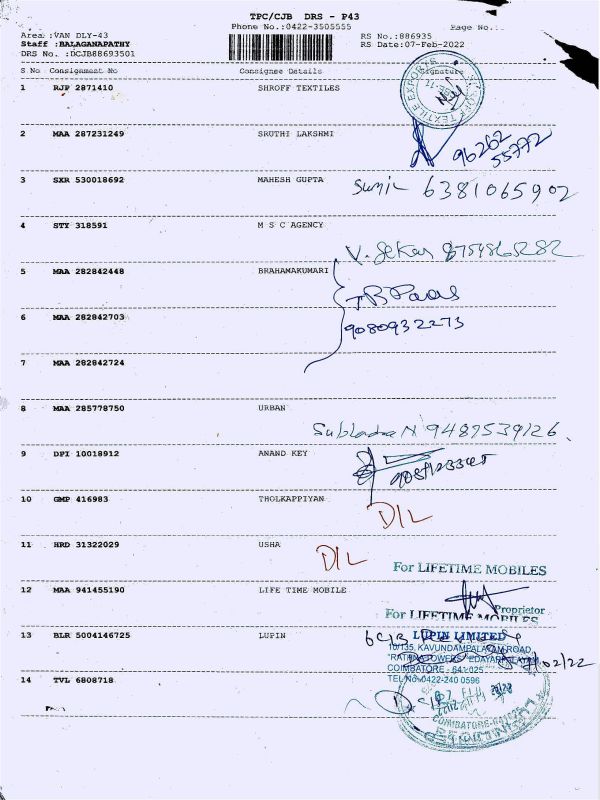 TPC/CJB DRS - P43
Phone No.:0422-3505555
Page No.:
Area :VAN DLY-43
RS No.:886935
Staff :BALAGANAPATHY
RS Date:07-Feb-2022
DRS No. :DCJB88693501
S No Consignment No Consignee Details Signature
1 RJP 2871410 SHROFF TEXTILES
2 MAA 287231249 SRUTHI LAKSHMI
96262
55772
3 SXR 530018692 MAHESH GUPTA Sunil 6381065902
4 STY 318591 M S C AGENCY
V. Sekar 8754865282
5 MAA 282842448 BRAHAMAKUMARI
6 MAA 282842703
9080932273
7 MAA 282842724
8 MAA 285778750 URBAN
9487539126
9 DPI 10018912 ANAND KEY
10 GMP 416983 THOLKAPPIYAN
D/L
11 HRD 31322029 USHA
D/L
For LIFETIME MOBILES
12 MAA 941455190 LIFE TIME MOBILE
Proprietor
For LIFETIME MOBILES
13 BLR 5004146725 LUPIN
LUPIN LIMITED
10/135, KAVUNDAMPALAYAM ROAD,
"RATHNA TOWERS" EDAYARPALAYAM,
COIMBATORE - 641 025
TEL No:0422-240 0596
14 TVL 6808718